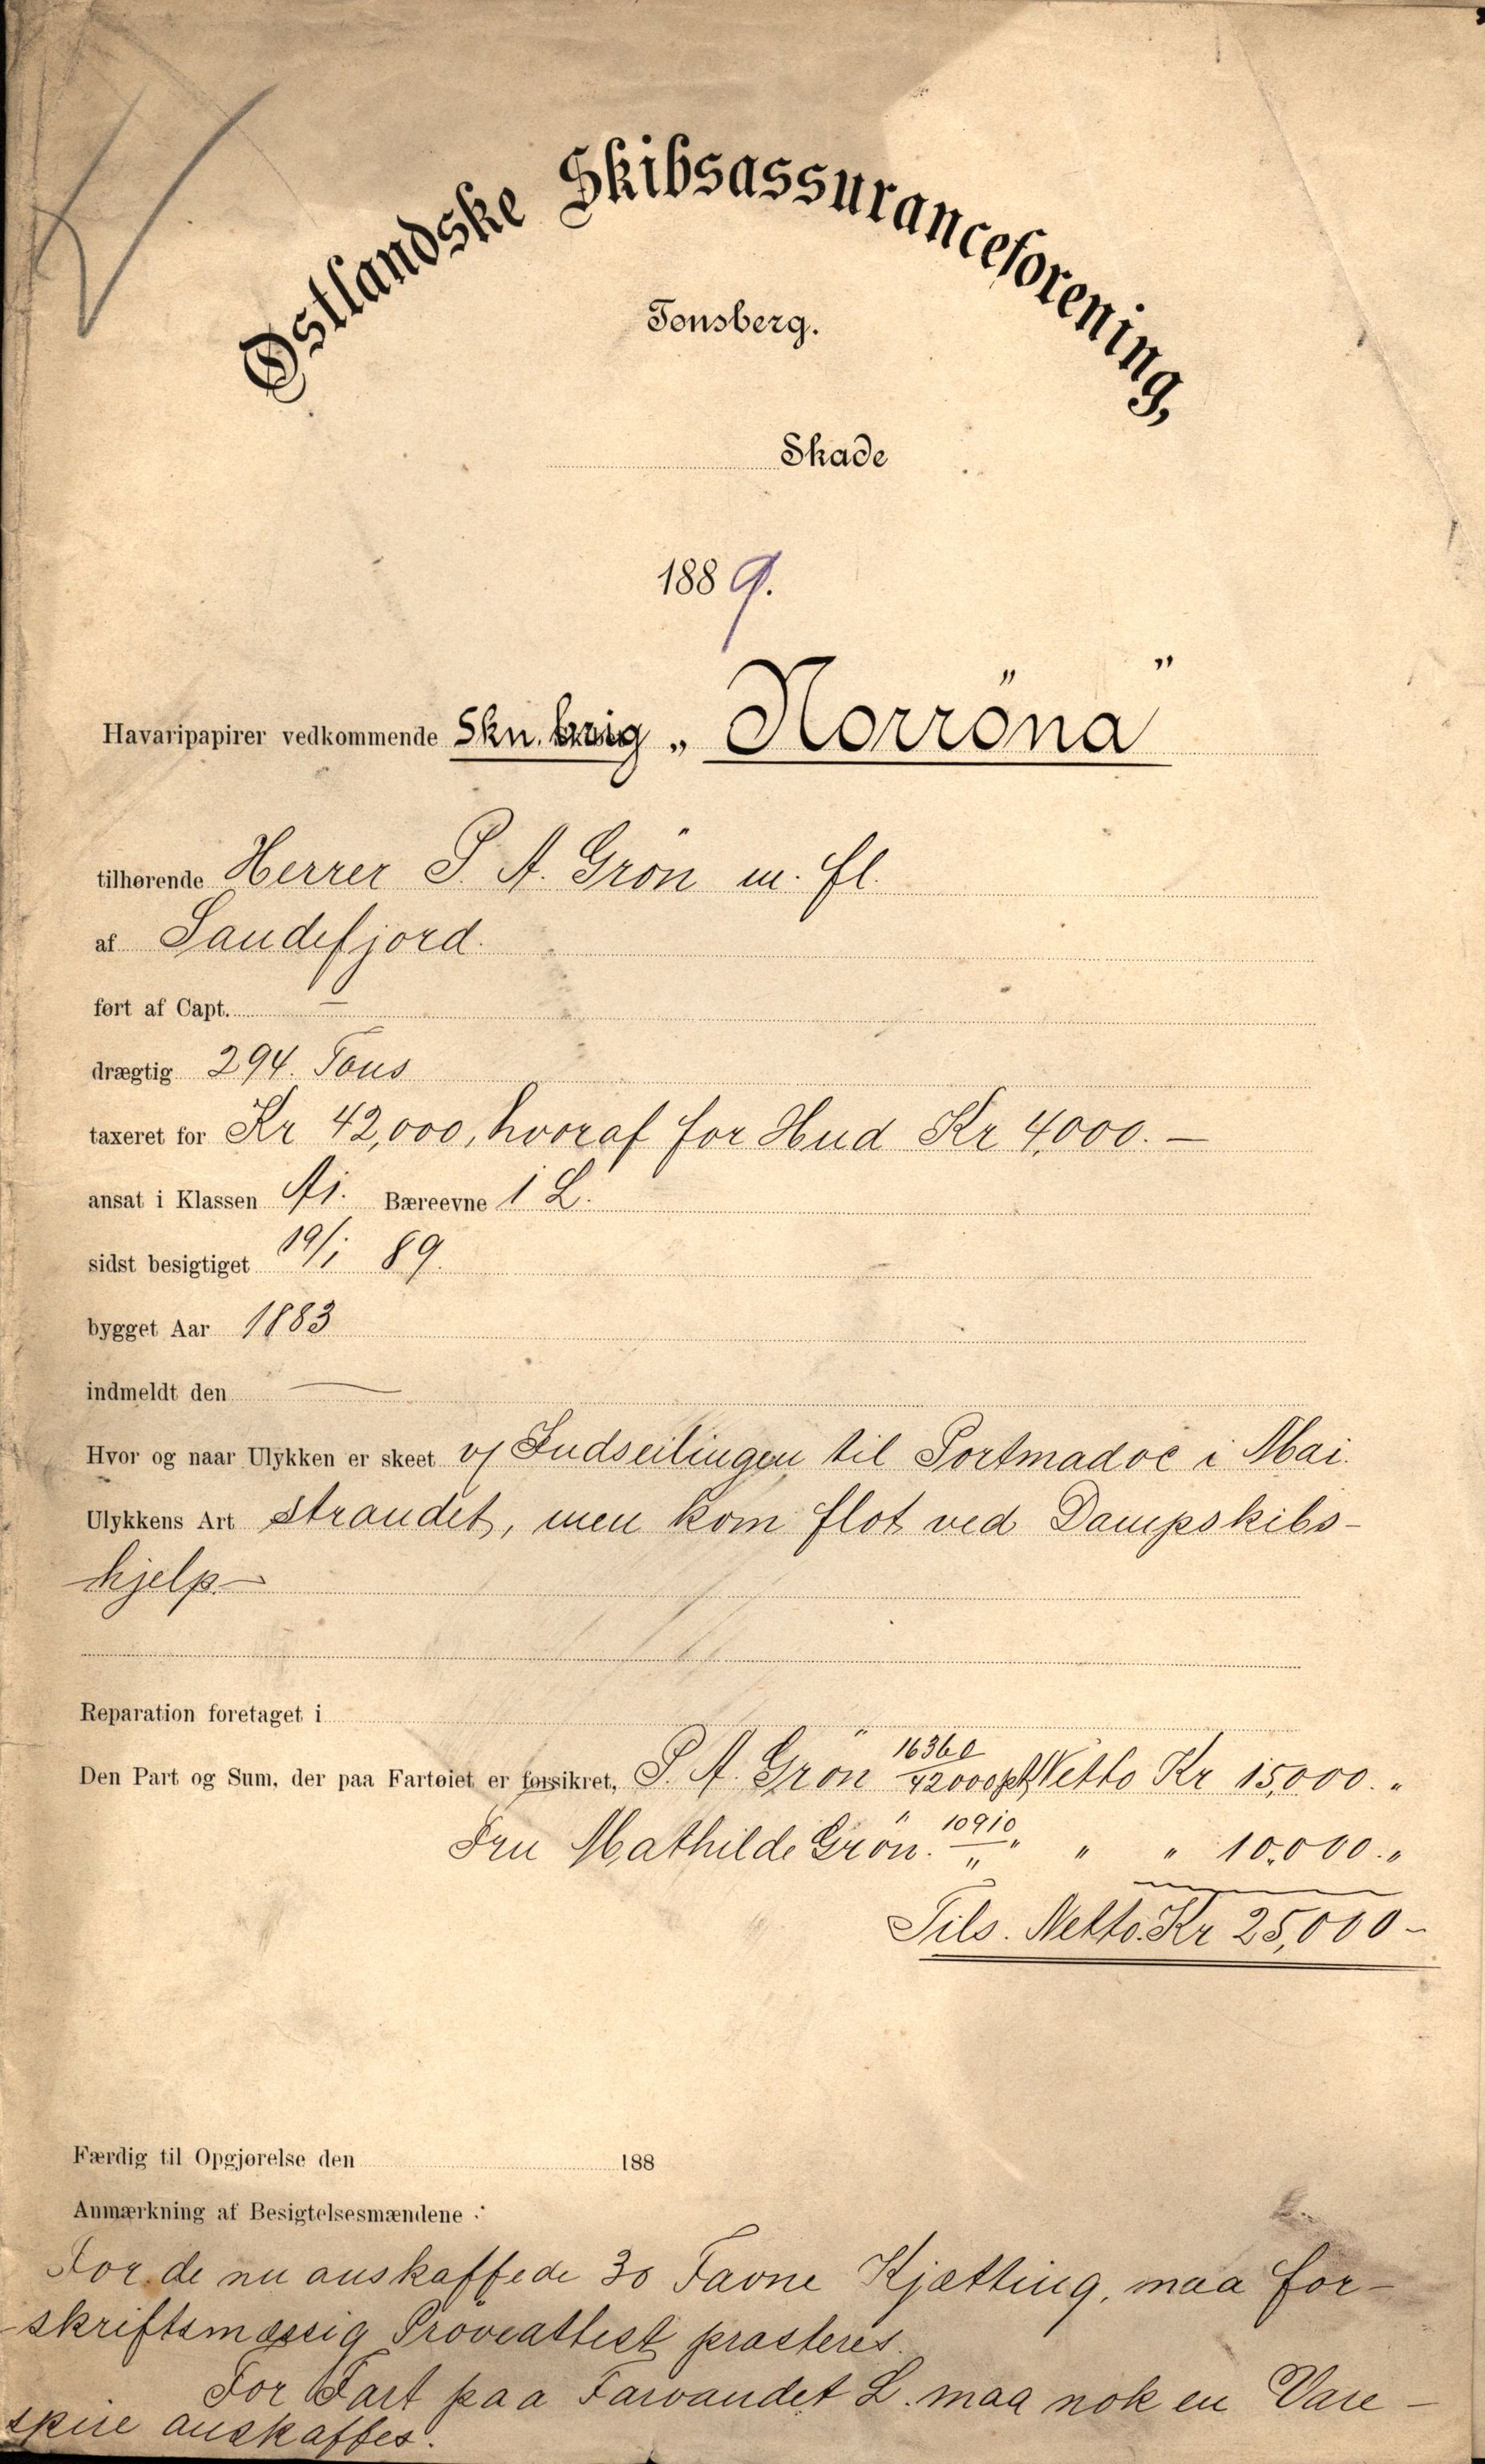 Østlandske Skibsassuranceforening,
Tønsberg.
Skade
1889.
Havaripapirer vedkommende Skn. brig „Norröna”
tilhørende Herrer P. A. Grön m. fl.
af Sandefjord.
ført af Capt. —
drægtig 294. Tons
taxeret for Kr 42,000, hvoraf for Hud Kr 4,000. —
ansat i Klassen A1. Bæreevne 1 L.
sidst besigtiget 19/1 89.
bygget Aar 1883
indmeldt den —
Hvor og naar Ulykken er skeet v/ Indseilingen til Portmadoc i Mai.
Ulykkens Art strandet, men kom flot ved Dampskibs-
hjelp.—
Reparation foretaget i
Den Part og Sum, der paa Fartøiet er forsikret, P. A. Grön 16360/42000 pt. Netto Kr 15,000. „
Fru Mathilde Grön. 10910/„ „ „ „ 10,000. „
Tils. Netto. Kr 25,000 -
Færdig til Opgjørelse den 188
Anmærkning af Besigtelsesmændene :
For de nu anskaffede 30 Favne Kjætting, maa for-
skriftsmæssig Pröveattest præsteres.
For Fart paa Farvandet L. maa nok en Vare-
spire anskaffes.